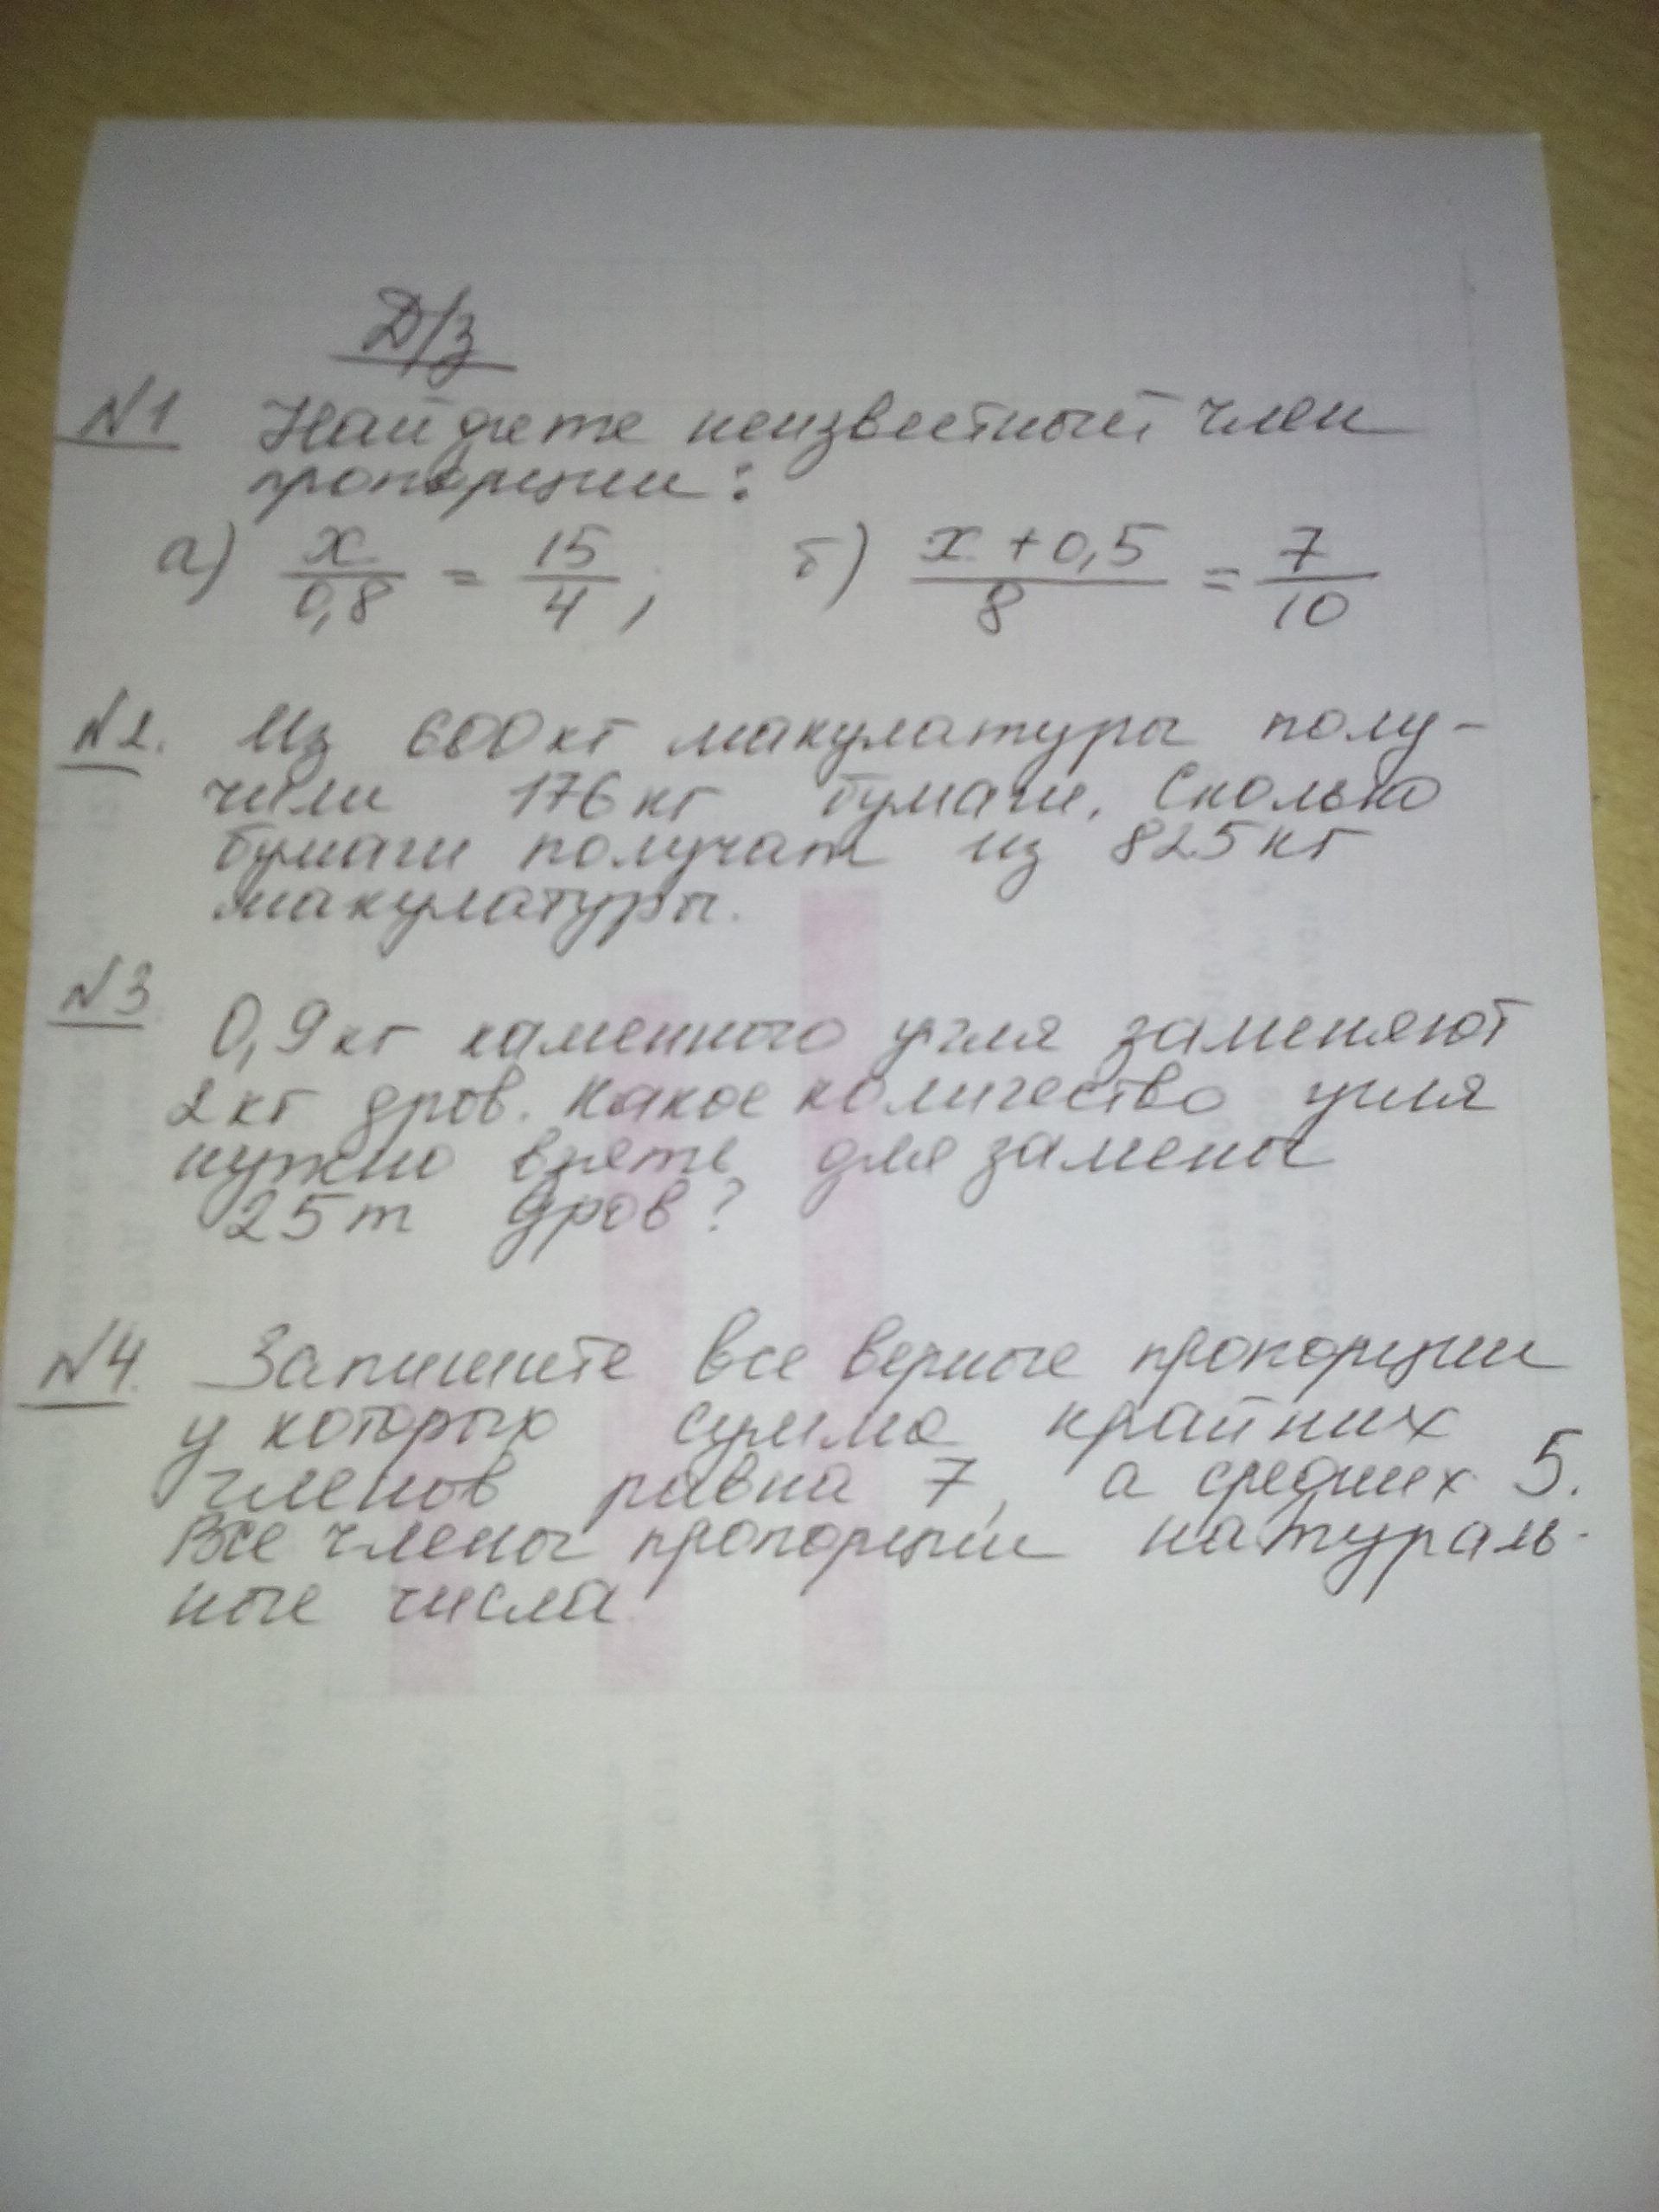 Д/з
№1 Найдите неизвестный член
пропорции:
а) x/0,8 = 15/4; б) x+0,5/8 = 7/10
№2. Из 600 кг макулатуры полу-
чили 176 кг бумаги. Сколько
бумаги получат из 825 кг
макулатуры.
№3
0,9 кг каменного угля заменяют
2 кг дров. Какое количество угля
нужно взять для замены
25 т дров?
№4. Запишите все верные пропорции
у которых сумма крайних
членов равна 7, а средних 5.
Все члены пропорции натураль-
ные числа